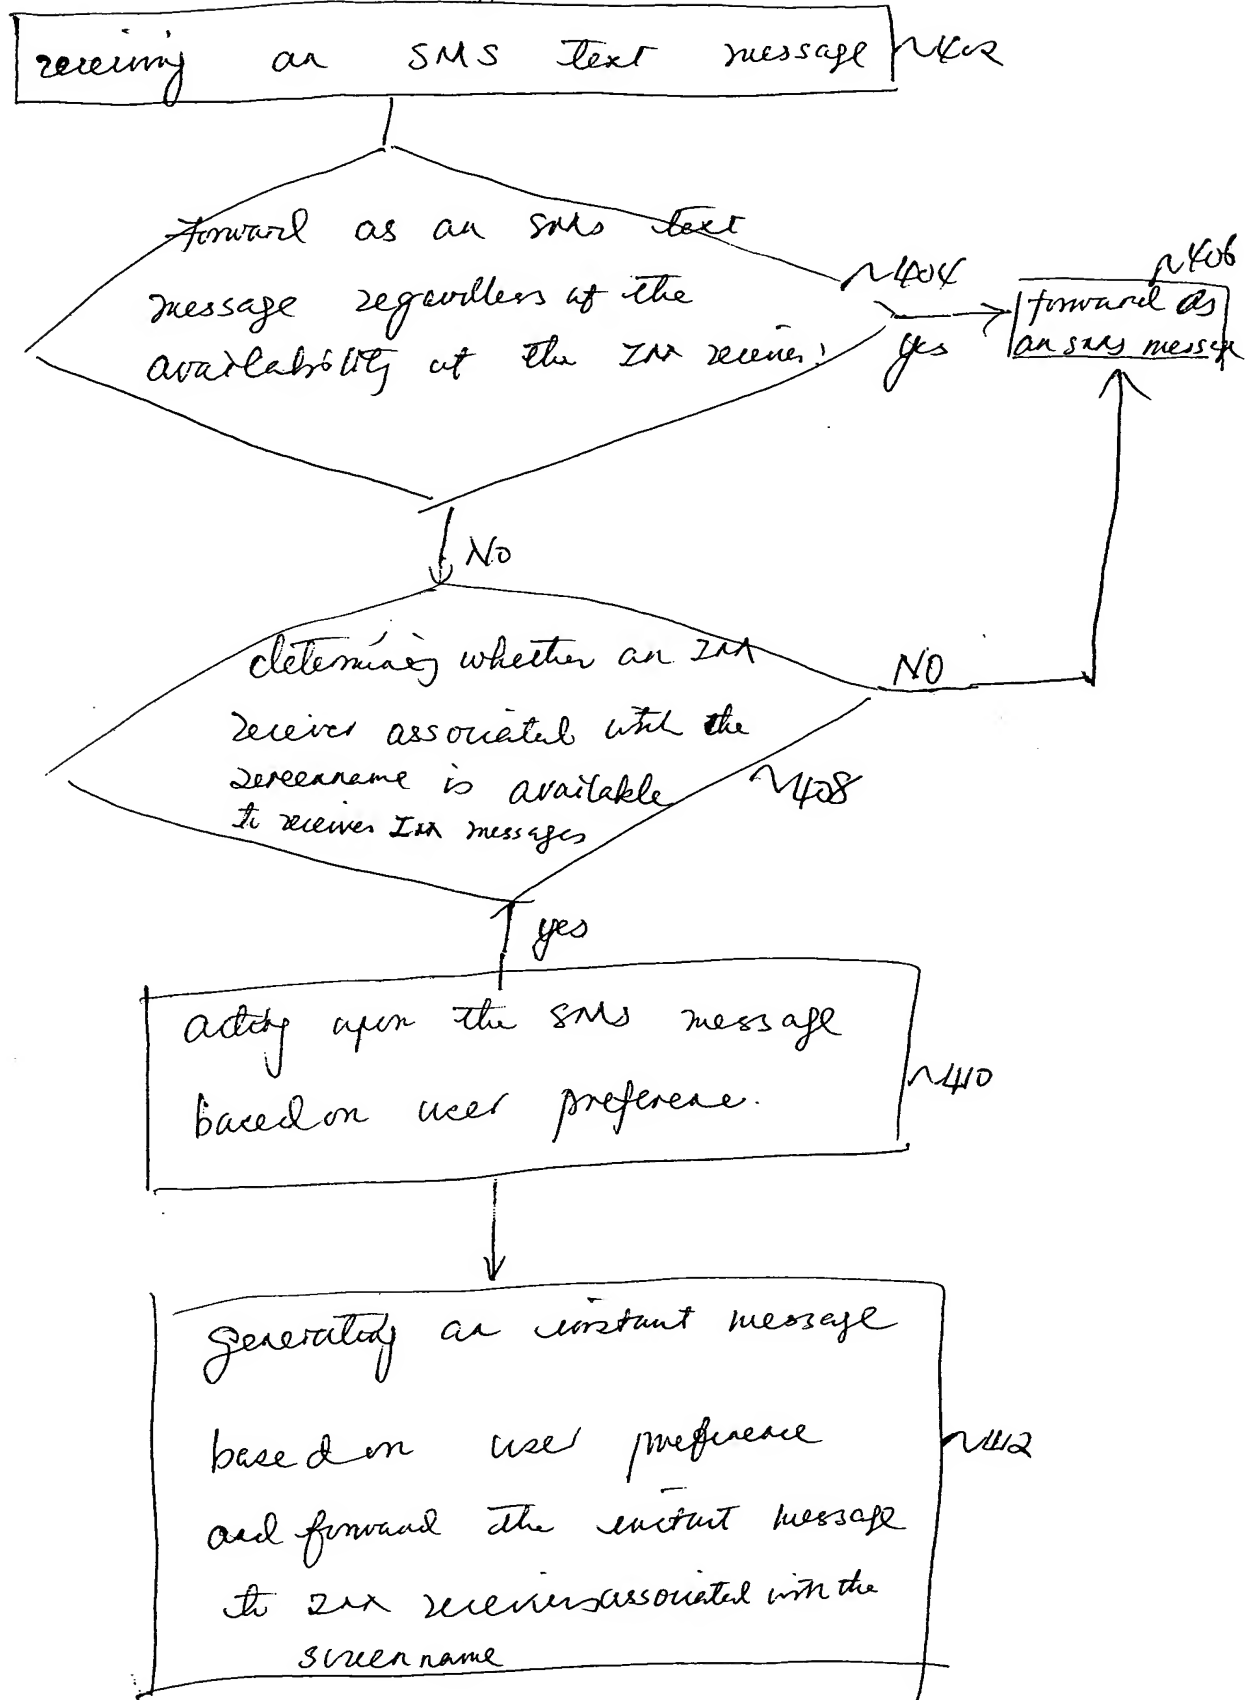 receiving an SMS text message ~402
forward as an SMS text
message regardless of the
availability of the IM receiver?
~404
yes
~406
forward as
an SMS messge
NO
determines whether an IM
receiver associated with the
screenname is available
to receives IM messages
NO
~408
yes
acting upon the SMS message
based on user preference.
~410
generating an instant message
based on user preference
and forward the instant message
to IM receivers associated with the
screen name
~412